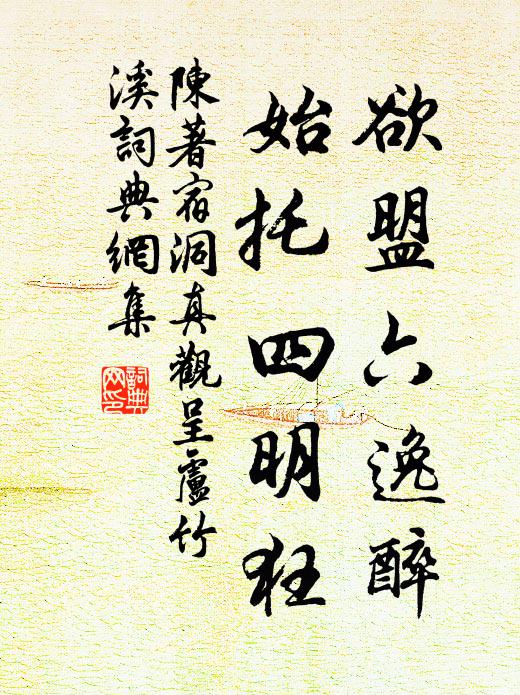 欲盟六逸醉
始托四明狂
陳著宿洞真觀呈盧竹
溪詞典網集
詞典
网印